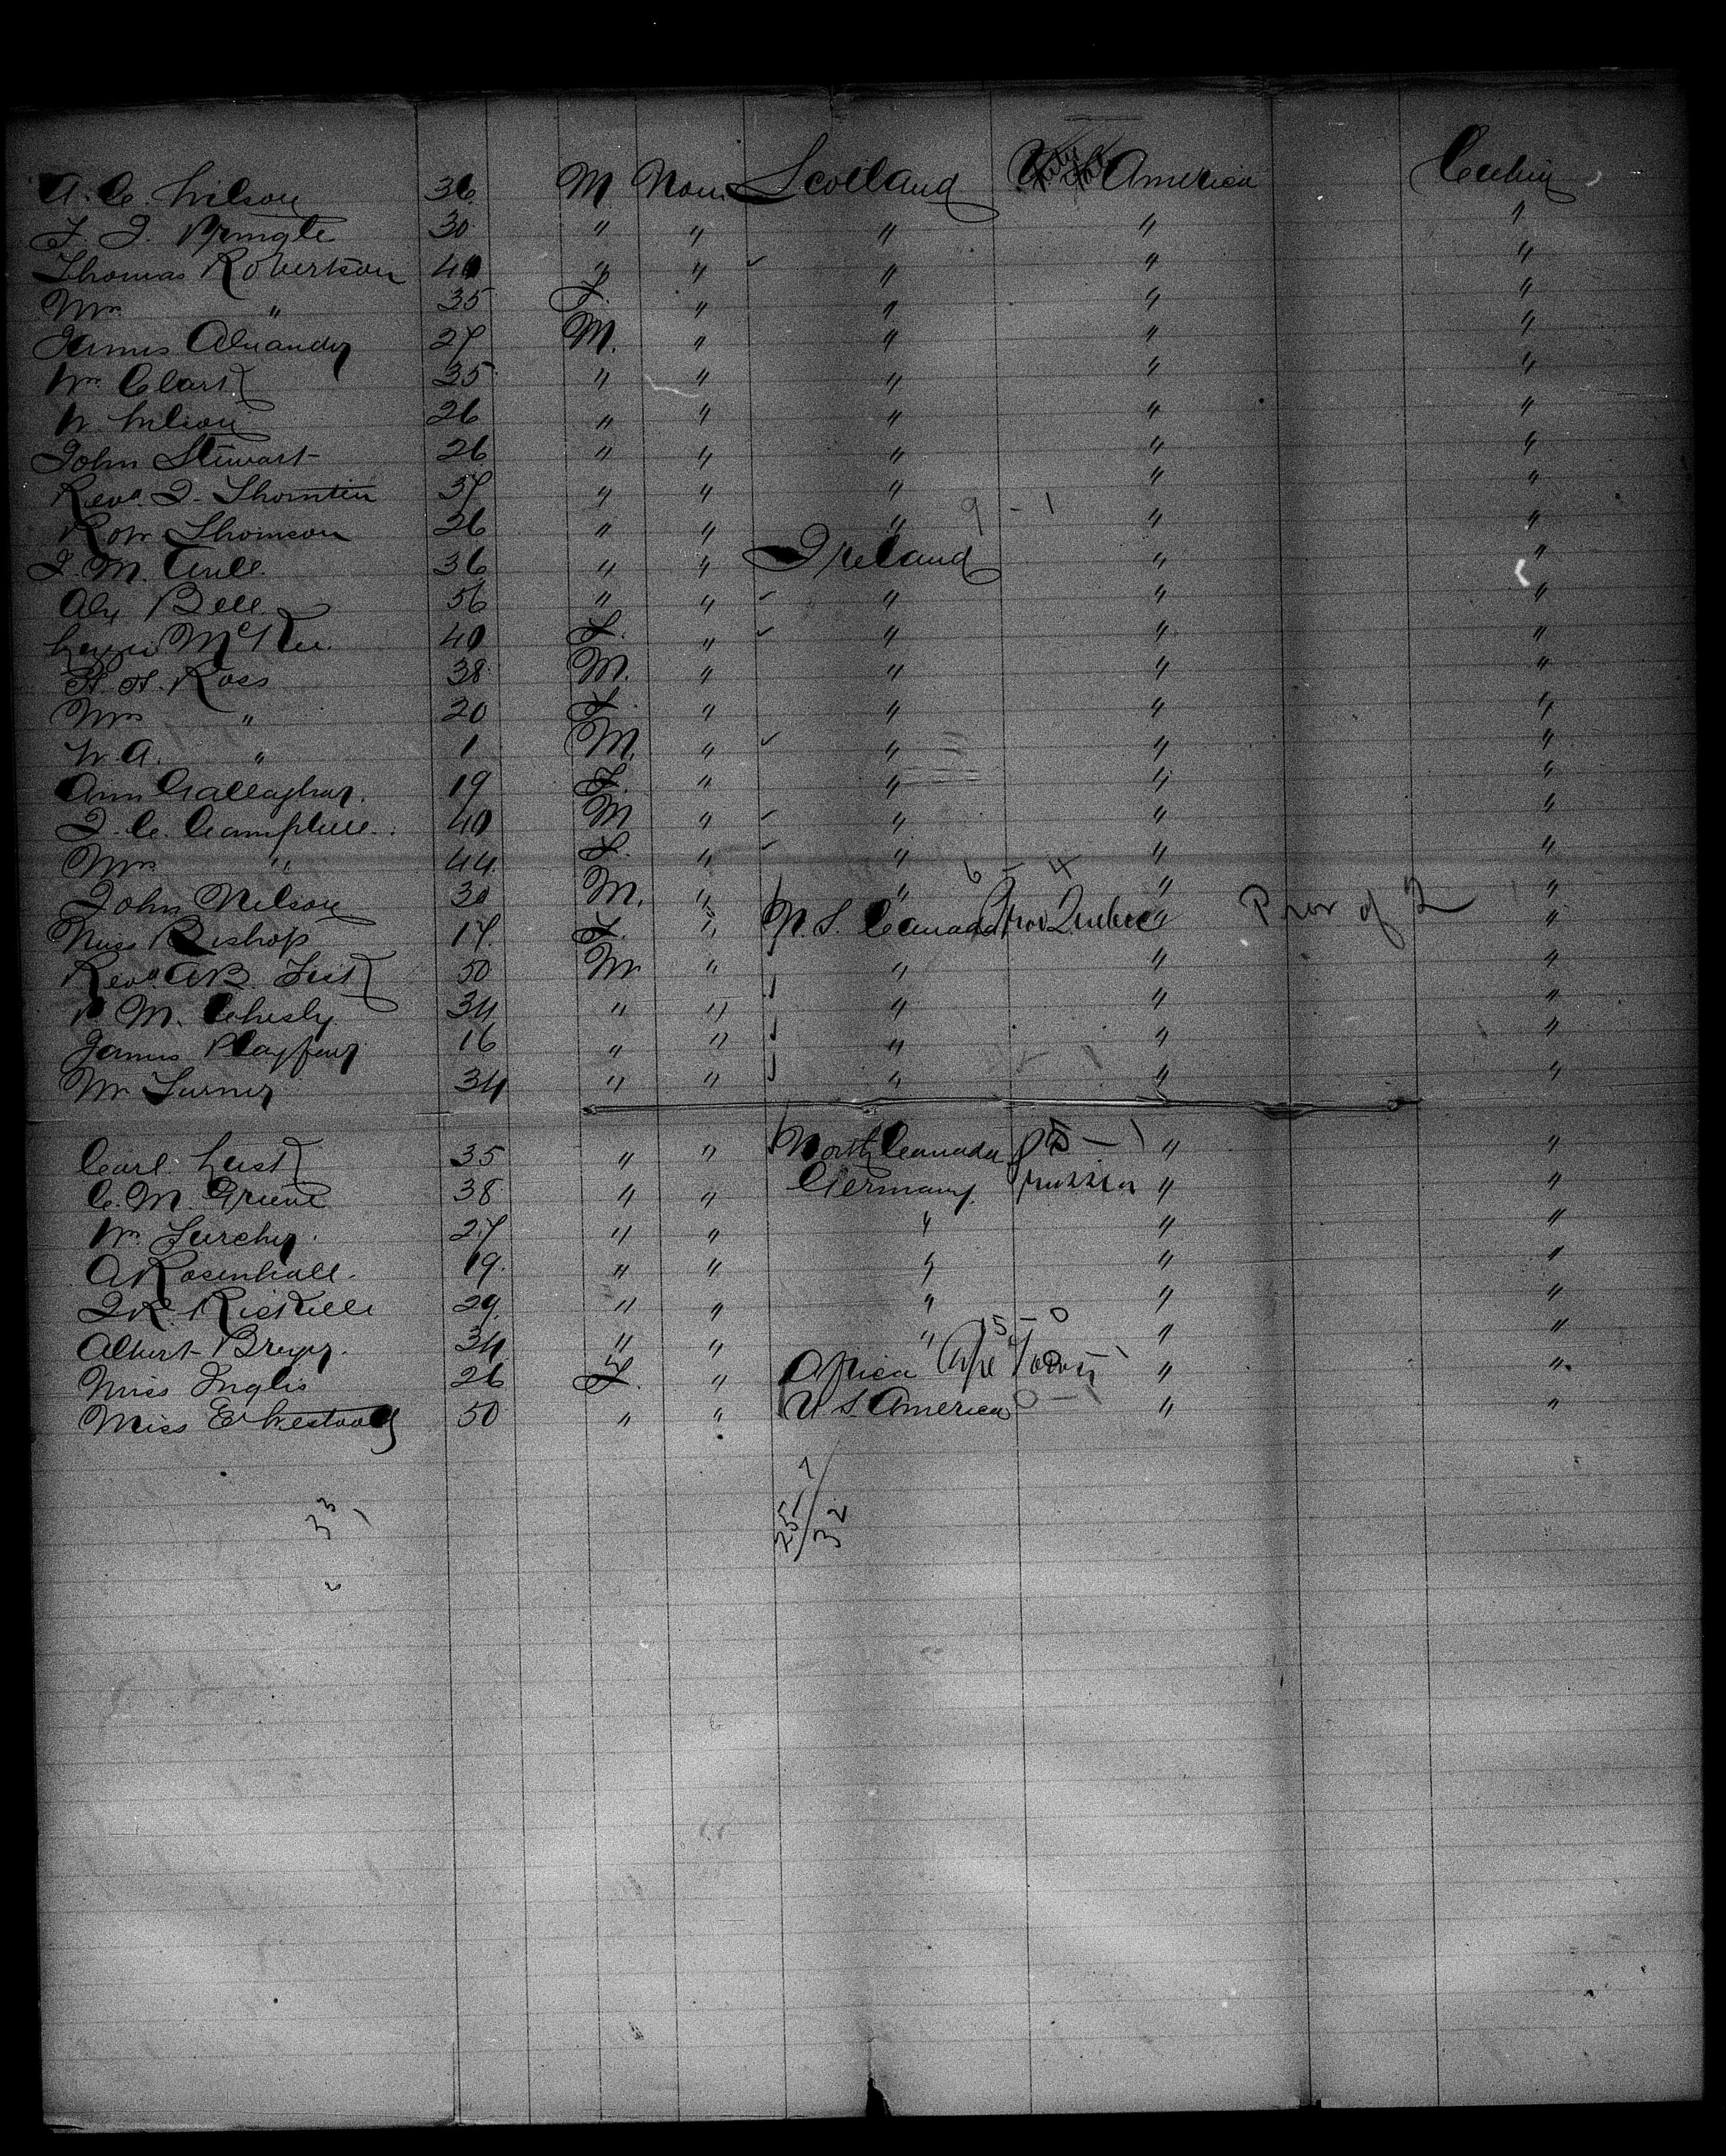 A. C. Wilson 36 M None Scotland U America Cabin
T. J. Pringle 30 " " " " "
Thomas Robertson 40 " " " " "
Mrs " 35 F. " " " "
James Alexander 27 M. " " " "
Wm Clark 35 " " " " "
W. Wilson 26 " " " " "
John Stewart 26 " " " " "
Revd. J. Thornton 37 " " " " "
9 - 1
Robt Thomson 26 " " " " "
J. M. 36 " " Ireland " "
Alex Bell 56 " " " " "
McKee 40 F. " " " "
H. H. Ross 38 M. " " " "
Mrs " 20 F. " " " "
W. A. " 1 M. " " " "
Ann Gallagher 19 F. " " " "
J. C. Campbell 40 M " " " "
Mrs " 44 F. " " " "
6 - 4
John Nelson 30 M. " " " "
Miss Bishop 17 F. " N. S. Canada Prov Quebec " Prov of Q "
Revd. A B. 50 M " " " "
M. Chesly 34 " " " " "
James Playfair 16 " " " " "
Wm Turner 34 " " " " "
Carl 35 " " North Canada 5 - 1 " "
C. M. Greene 38 " " Germany Prussia " "
Wm 27 " " " " "
A Rosenhall 19 " " " " "
29 " " " " "
5 - 0
Albert Breyer 34 " " " " "
Miss Inglis 26 F. " Africa Cape Town " "
Miss E Westwood 50 " " U S. America 0 - 1 " "
33
25/7
32